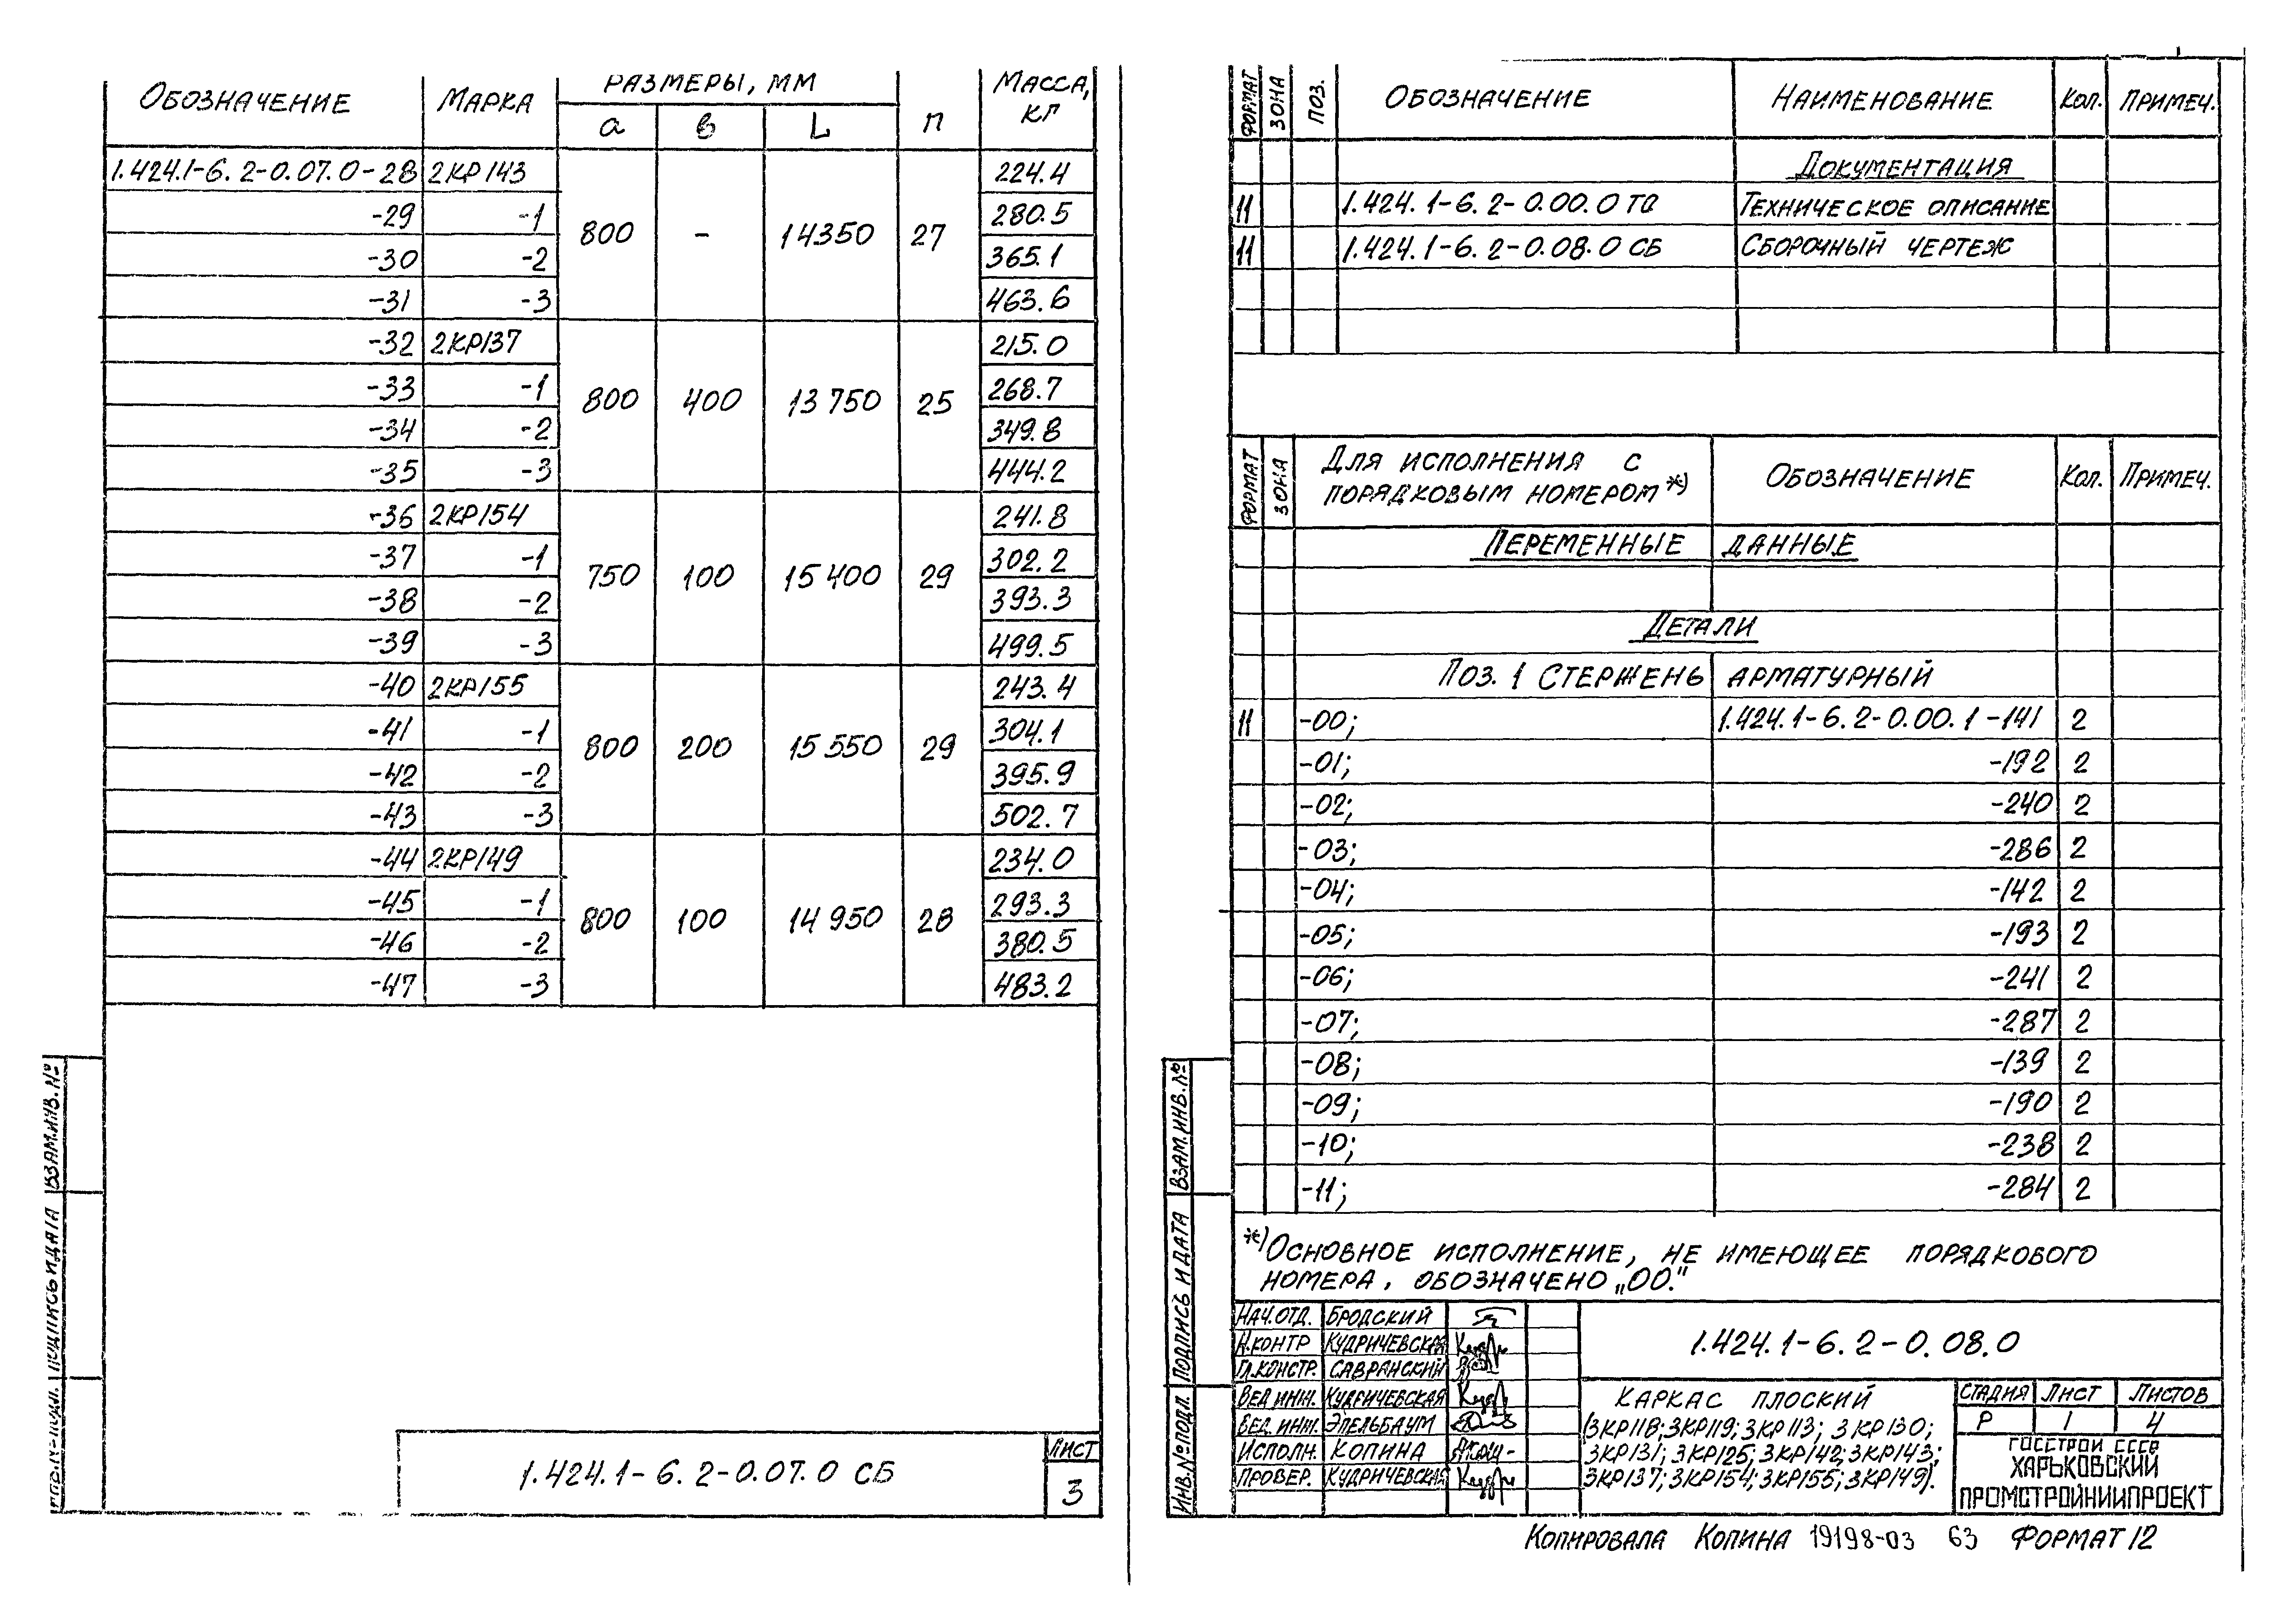 ОБОЗНАЧЕНИЕ МАРКА РАЗМЕРЫ, ММ п МАССА, КГ
а в L
1.424.1-6.2-0.07.0-28 2КР143 800 - 14350 27 224.4
-29 -1 280.5
-30 -2 365.1
-31 -3 463.6
-32 2КР137 800 400 13 750 25 215.0
-33 -1 268.7
-34 -2 349.8
-35 -3 444.2
-36 2КР154 750 100 15 400 29 241.8
-37 -1 302.2
-38 -2 393.3
-39 -3 499.5
-40 2КР155 800 200 15 550 29 243.4
-41 -1 304.1
-42 -2 395.9
-43 -3 502.7
-44 2КР149 800 100 14 950 28 234.0
-45 -1 293.3
-46 -2 380.5
-47 -3 483.2
ВЗАМ.ИНВ.№
ПОДПИСЬ И ДАТА
1.424.1-6.2-0.07.0 СБ
ЛИСТ
3
ФОРМАТ ЗОНА ПОЗ. ОБОЗНАЧЕНИЕ НАИМЕНОВАНИЕ КОЛ. ПРИМЕЧ.
ДОКУМЕНТАЦИЯ
11 1.424.1-6.2-0.00.0 ТО ТЕХНИЧЕСКОЕ ОПИСАНИЕ
11 1.424.1-6.2-0.08.0 СБ СБОРОЧНЫЙ ЧЕРТЕЖ
ФОРМАТ ЗОНА ДЛЯ ИСПОЛНЕНИЯ С ПОРЯДКОВЫМ НОМЕРОМ *) ОБОЗНАЧЕНИЕ КОЛ. ПРИМЕЧ.
ПЕРЕМЕННЫЕ ДАННЫЕ
ДЕТАЛИ
ПОЗ. 1 СТЕРЖЕНЬ АРМАТУРНЫЙ
11 -00; 1.424.1-6.2-0.00.1-141 2
-01; -192 2
-02; -240 2
-03; -286 2
-04; -142 2
-05; -193 2
-06; -241 2
-07; -287 2
-08; -139 2
-09; -190 2
-10; -238 2
-11; -284 2
*) ОСНОВНОЕ ИСПОЛНЕНИЕ, НЕ ИМЕЮЩЕЕ ПОРЯДКОВОГО
НОМЕРА, ОБОЗНАЧЕНО „00."
ВЗАМ.ИНВ.№
ПОДПИСЬ И ДАТА
ИНВ.№ ПОДЛ.
НАЧ.ОТД. БРОДСКИЙ
Н.КОНТР КУДРИЧЕВСКАЯ
ГЛ.КОНСТР. САВРАНСКИЙ
ВЕД ИНЖ. КУДРИЧЕВСКАЯ
ВЕД. ИНЖ. ЭПЕЛЬБАУМ
ИСПОЛН. КОПИНА
ПРОВЕР. КУДРИЧЕВСКАЯ
1.424.1-6.2-0.08.0
КАРКАС ПЛОСКИЙ
(3КР118; 3КР119; 3КР113; 3КР130;
3КР131; 3КР125; 3КР142; 3КР143;
3КР137; 3КР154; 3КР155; 3КР149).
СТАДИЯ ЛИСТ ЛИСТОВ
Р 1 4
ГОССТРОЙ СССР
ХАРЬКОВСКИЙ
ПРОМСТРОЙНИИПРОЕКТ
КОПИРОВАЛА КОПИНА 19198-03 63 ФОРМАТ 12